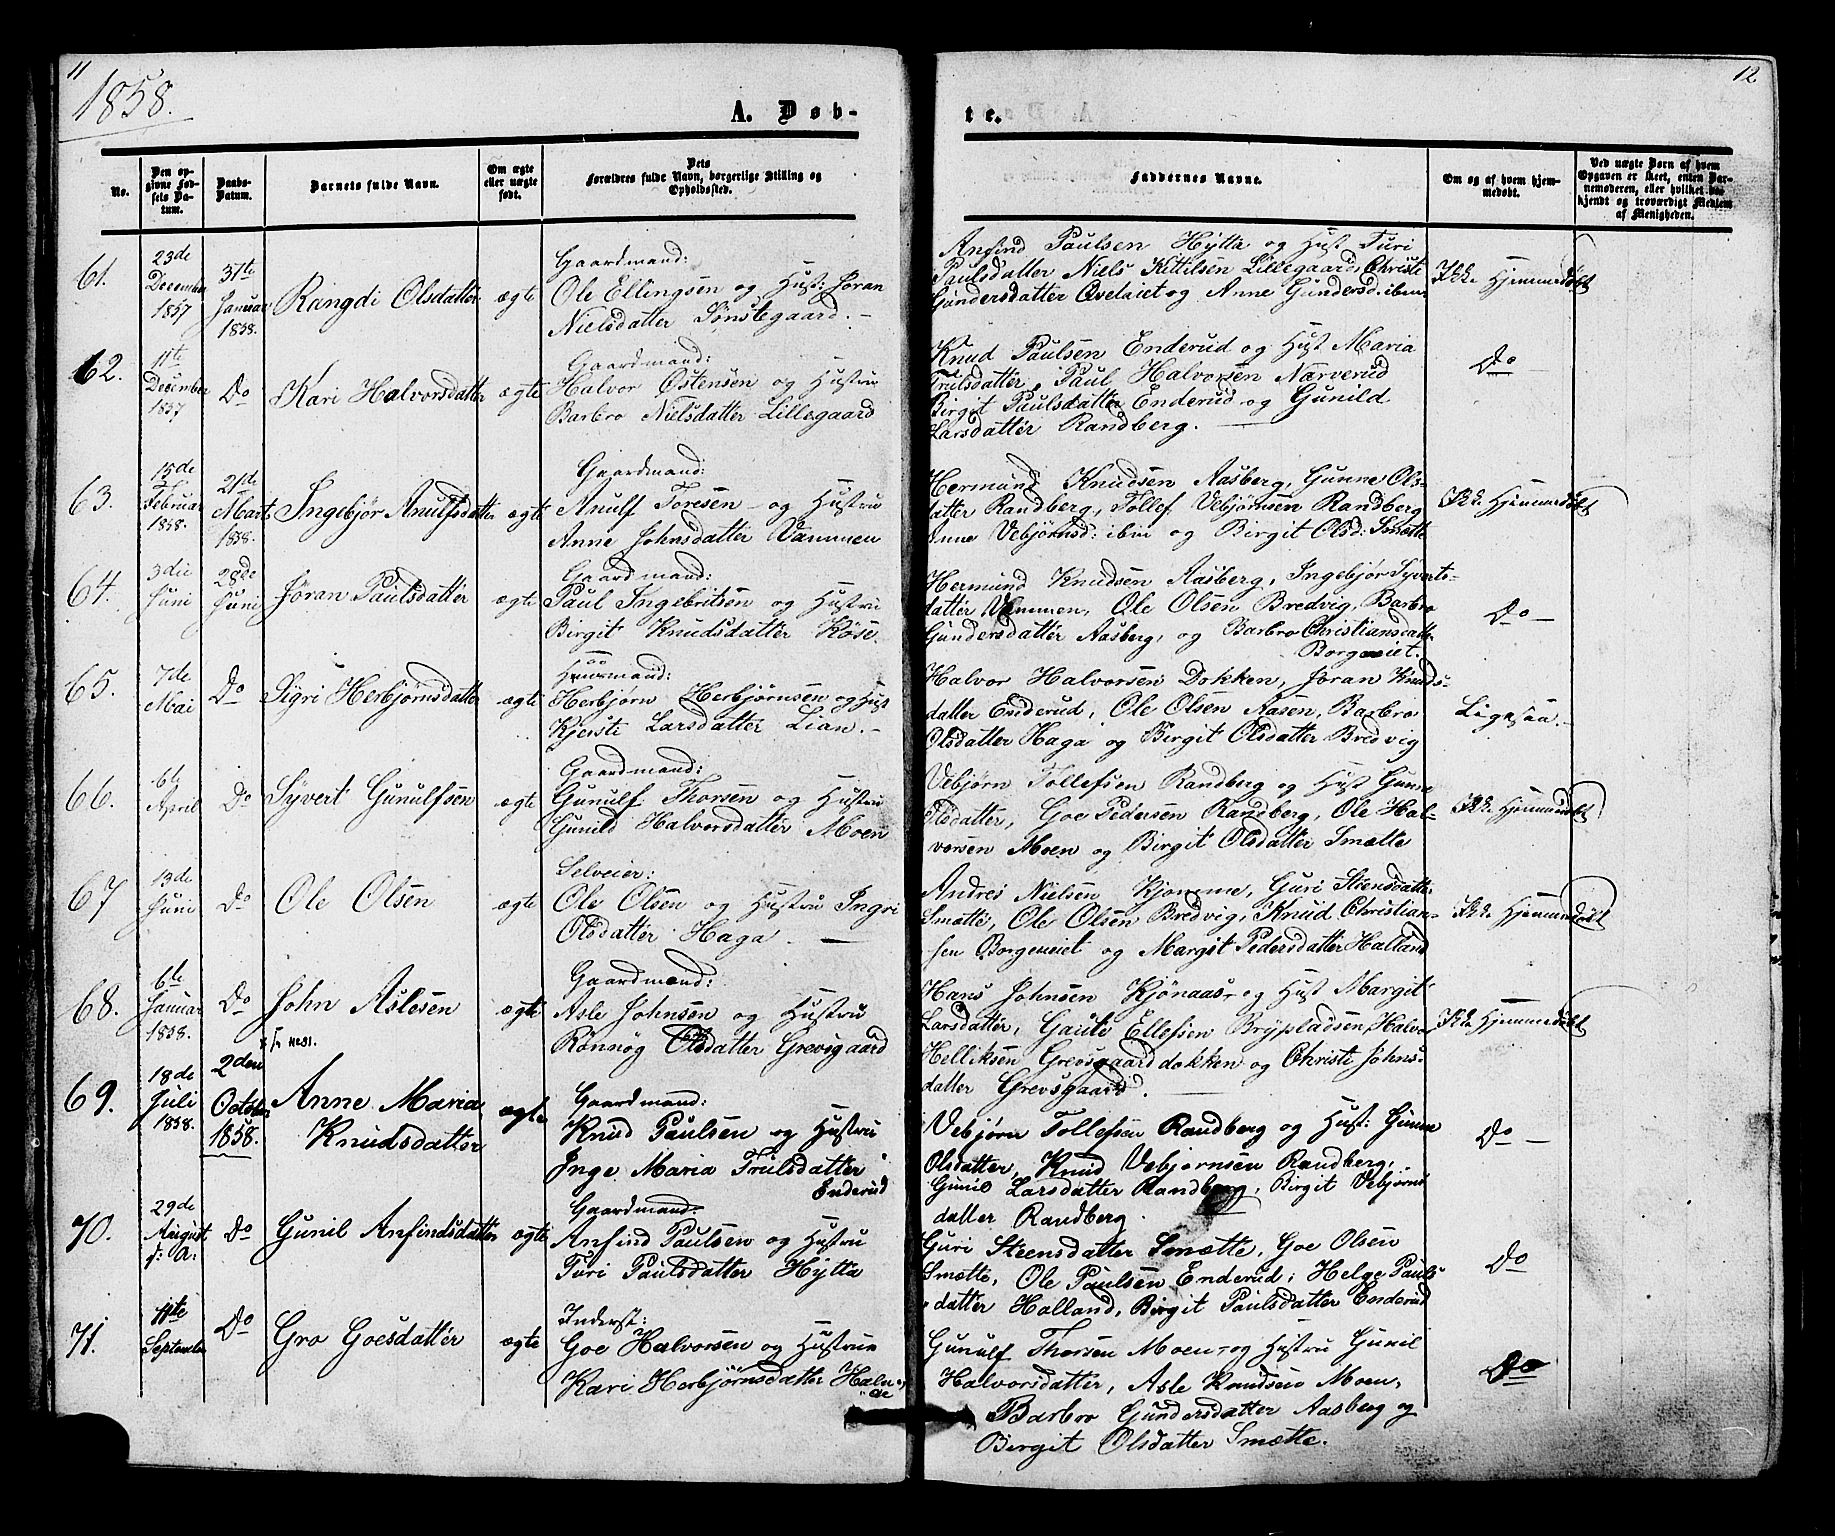 11
1858.
A. Døb-
No.
Den op-
givne Fød-
sels Da-
tum.
Daabs-
Datum.
Barnets fulde Navn.
Om ægte
eller uægte
født.
Dets
Forældres fulde Navn, borgerlige Stilling og
Opholdssted.
61.
23de
December
1857
31te
Januar
1858.
Rangdi Olsdatter
ægte
Gaardmand:
Ole Ellingsen og Hust: Jøran
Nielsdatter Sønstegaard.-
62.
11te
December
1857
Do
Kari Halvorsdatter
ægte
Gaardmand:
Halvor Østensen og Hustru
Barbro Nielsdatter Lillegaard
63.
15de
Februar
1858.
21de
Mart
1858.
Ingebjør Anulfsdatter
ægte
Gaardmand:
Anulf Toresen og Hustru
Anne Johnsdatter Vammen
64.
3die
Juni
28de
Juni
Jøran Paulsdatter
ægte
Gaardmand:
Paul Ingebritsen og Hustru
Birgit Knudsdatter Köse.
65.
7de
Mai
Do
Sigri Herbjørnsdatter
ægte
Huusmand:
Herbjørn Herbjørnsen og Hust
Kjersti Larsdatter Lian.-
66.
6te
April
Do
Syvert Gunulfsen
ægte
Gaardmand:
Gunulf Thorsen og Hustru
Gunild Halvorsdatter Moen
67
13de
Juni
Do
Ole Olsen
ægte
Selveier:
Ole Olsen og Hustru Ingri
Olsdatter Haga.
68.
6te
Januar
1858.
Do
John Aslesen
ægte
Gaardmand:
Asle Johnsen og Hustru
Rønnog Olsdatter Grevsgaard
69.
18de
Juli
1858.
2den
October
1858.
Anne Maria
Knudsdatter
ægte
Gaardmand:
Knud Paulsen og Hustru
Inge Maria Trulsdatter
Enderud
70.
29de
August
f: A:
Do
Gunil Anfindsdatter
ægte
Gaardmand:
Anfind Paulsen og Hustru
Turi Paulsdatter Hÿtta
71.
11te
September
Do
Gro Goesdatter
ægte
Inderst:
Goe Halvorsen og Hustrue
Kari Herbjörnsdatter
12
te.
Faddernes Navne.
Om og af hvem hjem-
medøbt.
Ved uægte Børn af hvem
Opgaven er skeet, enten Bar-
nemoderen, eller hvilket be-
kjendt og troværdigt Medlem
af Menigheden.
Anfind Paulsen Hÿtta og Hust Turi
Paulsdatter Niels Kittilsen Lillegaard, Christi
Gundersdatter Qvelaiet og Anne Gundersd: ibem
Ikke Hjemmedøbt
Knud Paulsen Enderud og Hust Maria
Trulsdatter, Paul Halvorsen Nærverud
Birgit Paulsdatter Enderud og Gunild
Larsdatter Randberg.
Do
Hermund Knudsen Aasberg, Gunne Ols-
datter Randberg, Tollef Vebjørnsen Randberg
Anne Vebjørnsd: ibm og Birgit Olsd: Smætte
Ikke Hjemmedøbt
Hermund Knudsen Aasberg, Ingebjør Syverts-
datter Vammen, Ole Olsen Bredvig, Barbro
Gundersdatter Aasberg, og Barbro Christiansdatter
Borgeneiet.
Do
Halvor Halvorsen Dokken, Joran Knuds-
datter Enderud, Ole Olsen Aasen, Barbro
Olsdatter Haga og Birgit Olsdatter Bredvig
Ligesaa.-
Vebjørn Tollefsen Randberg og Hust Gunne
Olsdatter, Goe Pedersen Randberg, Ole Hal-
vorsen Moen og Birgit Olsdatter Smætte
Ikke Hjemmedøbt
Andres Nielsen Kjomme, Guri Steensdatter
Smætte, Ole Olsen Bredvig, Knud Christian-
sen Borgeneiet og Margit Pedersdatter Halland
Ikke Hjemmedøbt
Hans Johnsen Kjönaas og Hust Margit
Larsdatter, Gaute Ellefsen Brypladsen, Halvor
Helliksen Grevsgaarddokken og Christi Johns-
datter Grevsgaard.
Ikke Hjemmedøbt
Vebjørn Tollefsen Randberg og Hust: Gunne
Olsdatter, Knud Vebjørnsen Randberg,
Gunil Larsdatter Randberg, Birgit Vebjørns
datter Randberg.
Do
Guri Steensdatter Smætte, Goe Olsen
Smætte, Ole Paulsen Enderud, Helge Pauls
datter Halland, Birgit Paulsdatter Enderud
Do
Gunulf Thorsen Moen og Hustru Gunil
Halvorsdatter, Asle Knudsen Moen,
Barbro Gundersdatter Aasberg og
Birgit Olsdatter Smætte.
Do